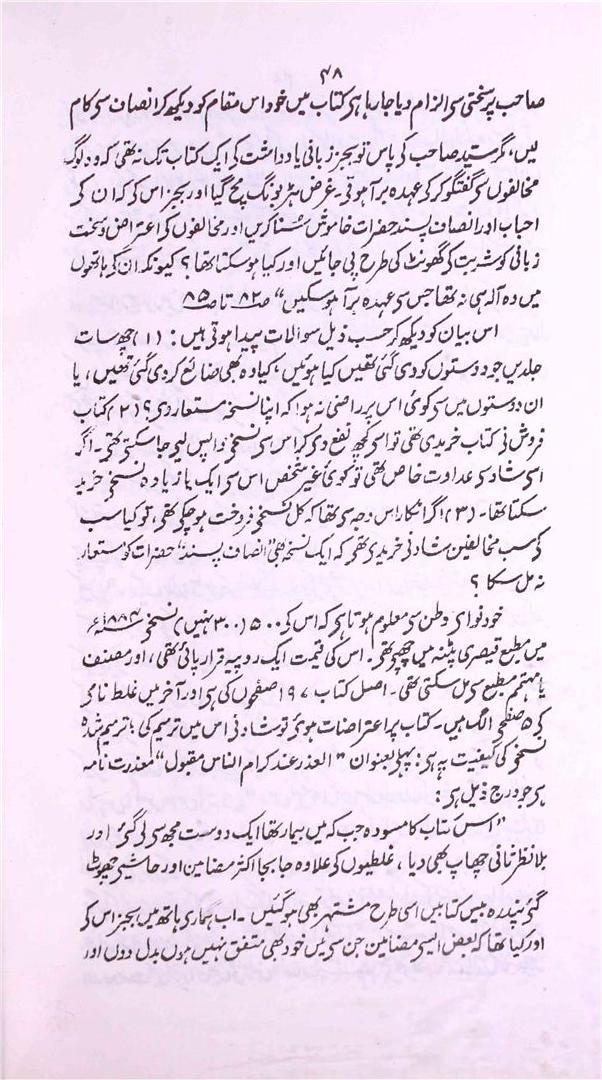 ۴۸
صاحب پر سختی سی الزام دیا جا رہا ہی کتاب میں خود اس مقام کو دیکھ کر انصاف سی کام
لیں، گر سید صاحب کی پاس تو بجز زبانی یادداشت کی ایک کتاب تک نہ تھی کہ وہ لوگ
مخالفوں سی گفتگو کر کی عہدہ بر آ ہوتی۔ غرض ہڑبونگ مچ گیا اور بجز اس کی کہ ان کی
احباب اور انصاف پسند حضرات خاموش سُنا کریں اور مخالفوں کی اعتراض و سخت
زبانی کو شربت کی گھونٹ کی طرح پی جائیں اور کیا ہو سکتا تھا؟ کیونکہ ان کی ہاتھوں
میں وہ آلہ ہی نہ تھا جس سی عہدہ بر آ ہو سکیں" صـ۸۲ تا صـ۸۵
اس بیان کو دیکھ کر حسب ذیل سوالات پیدا ہوتی ہیں: (۱) چھ سات
جلدیں جو دوستوں کو دی گئی تھیں کیا ہوئیں، کیا وہ بھی ضائع کر دی گئی تھیں، یا
ان دوستوں میں سی کوئی اس پر راضی نہ ہوا کہ اپنا نسخہ مستعار دی؟ (۲) کتاب
فروش نی کتاب خریدی تھی تو اسی کچھ نفع دی کر اس سی نسخی واپس لیی جا سکتی تھی۔ اگر
اسی شاد سی عداوت خاص تھی تو کوئی غیر شخص اس سی ایک یا زیادہ نسخی خرید
سکتا تھا۔ (۳) اگر انکار اس وجہ سی تھا کہ کل نسخی فروخت ہو چکی تھی، تو کیا سب
کی سب مخالفین شاد نی خریدی تھی کہ ایک نسخہ بھی "انصاف پسند" حضرات کو مستعار
نہ مل سکا؟
خود نوای وطن سی معلوم ہوتا ہی کہ اس کی ۵۰۰ (۳۰۰ نہیں) نسخی ۱۸۸۴ء
میں مطبع قیصری پٹنہ میں چھپی تھی۔ اس کی قیمت ایک روپیہ قرار پائی تھی، اور مصنف
یا مہتمم مطبع سی مل سکتی تھی۔ اصل کتاب ۱۹۷ صفحوں کی ہی اور آخر میں غلط نامی
کی ۵ صفحی الگ ہیں۔ کتاب پر اعتراضات ہوئی تو شاد نی اس میں ترمیم کی؛ ترمیم شدہ
نسخی کی کیفیت یہ ہی: پہلی بعنوان "العذر عند کرام الناس مقبول" معذرت نامہ
ہی جو درج ذیل ہی:
"اس کتاب کا مسودہ جب کہ میں بیمار تھا ایک دوست مجھ سی لی گئی اور
بلا نظر ثانی چھاپ بھی دیا، غلطیوں کی علاوہ جا بجا اکثر مضامین اور حاشیی چھوٹ
گئی پندرہ بیس کتابیں اسی طرح مشتہر بھی ہو گئیں۔ اب ہماری ہاتھ میں بجز اس کی
اور کیا تھا کہ بعض ایسی مضامین جن سی میں خود بھی متفق نہیں ہوں بدل دوں اور